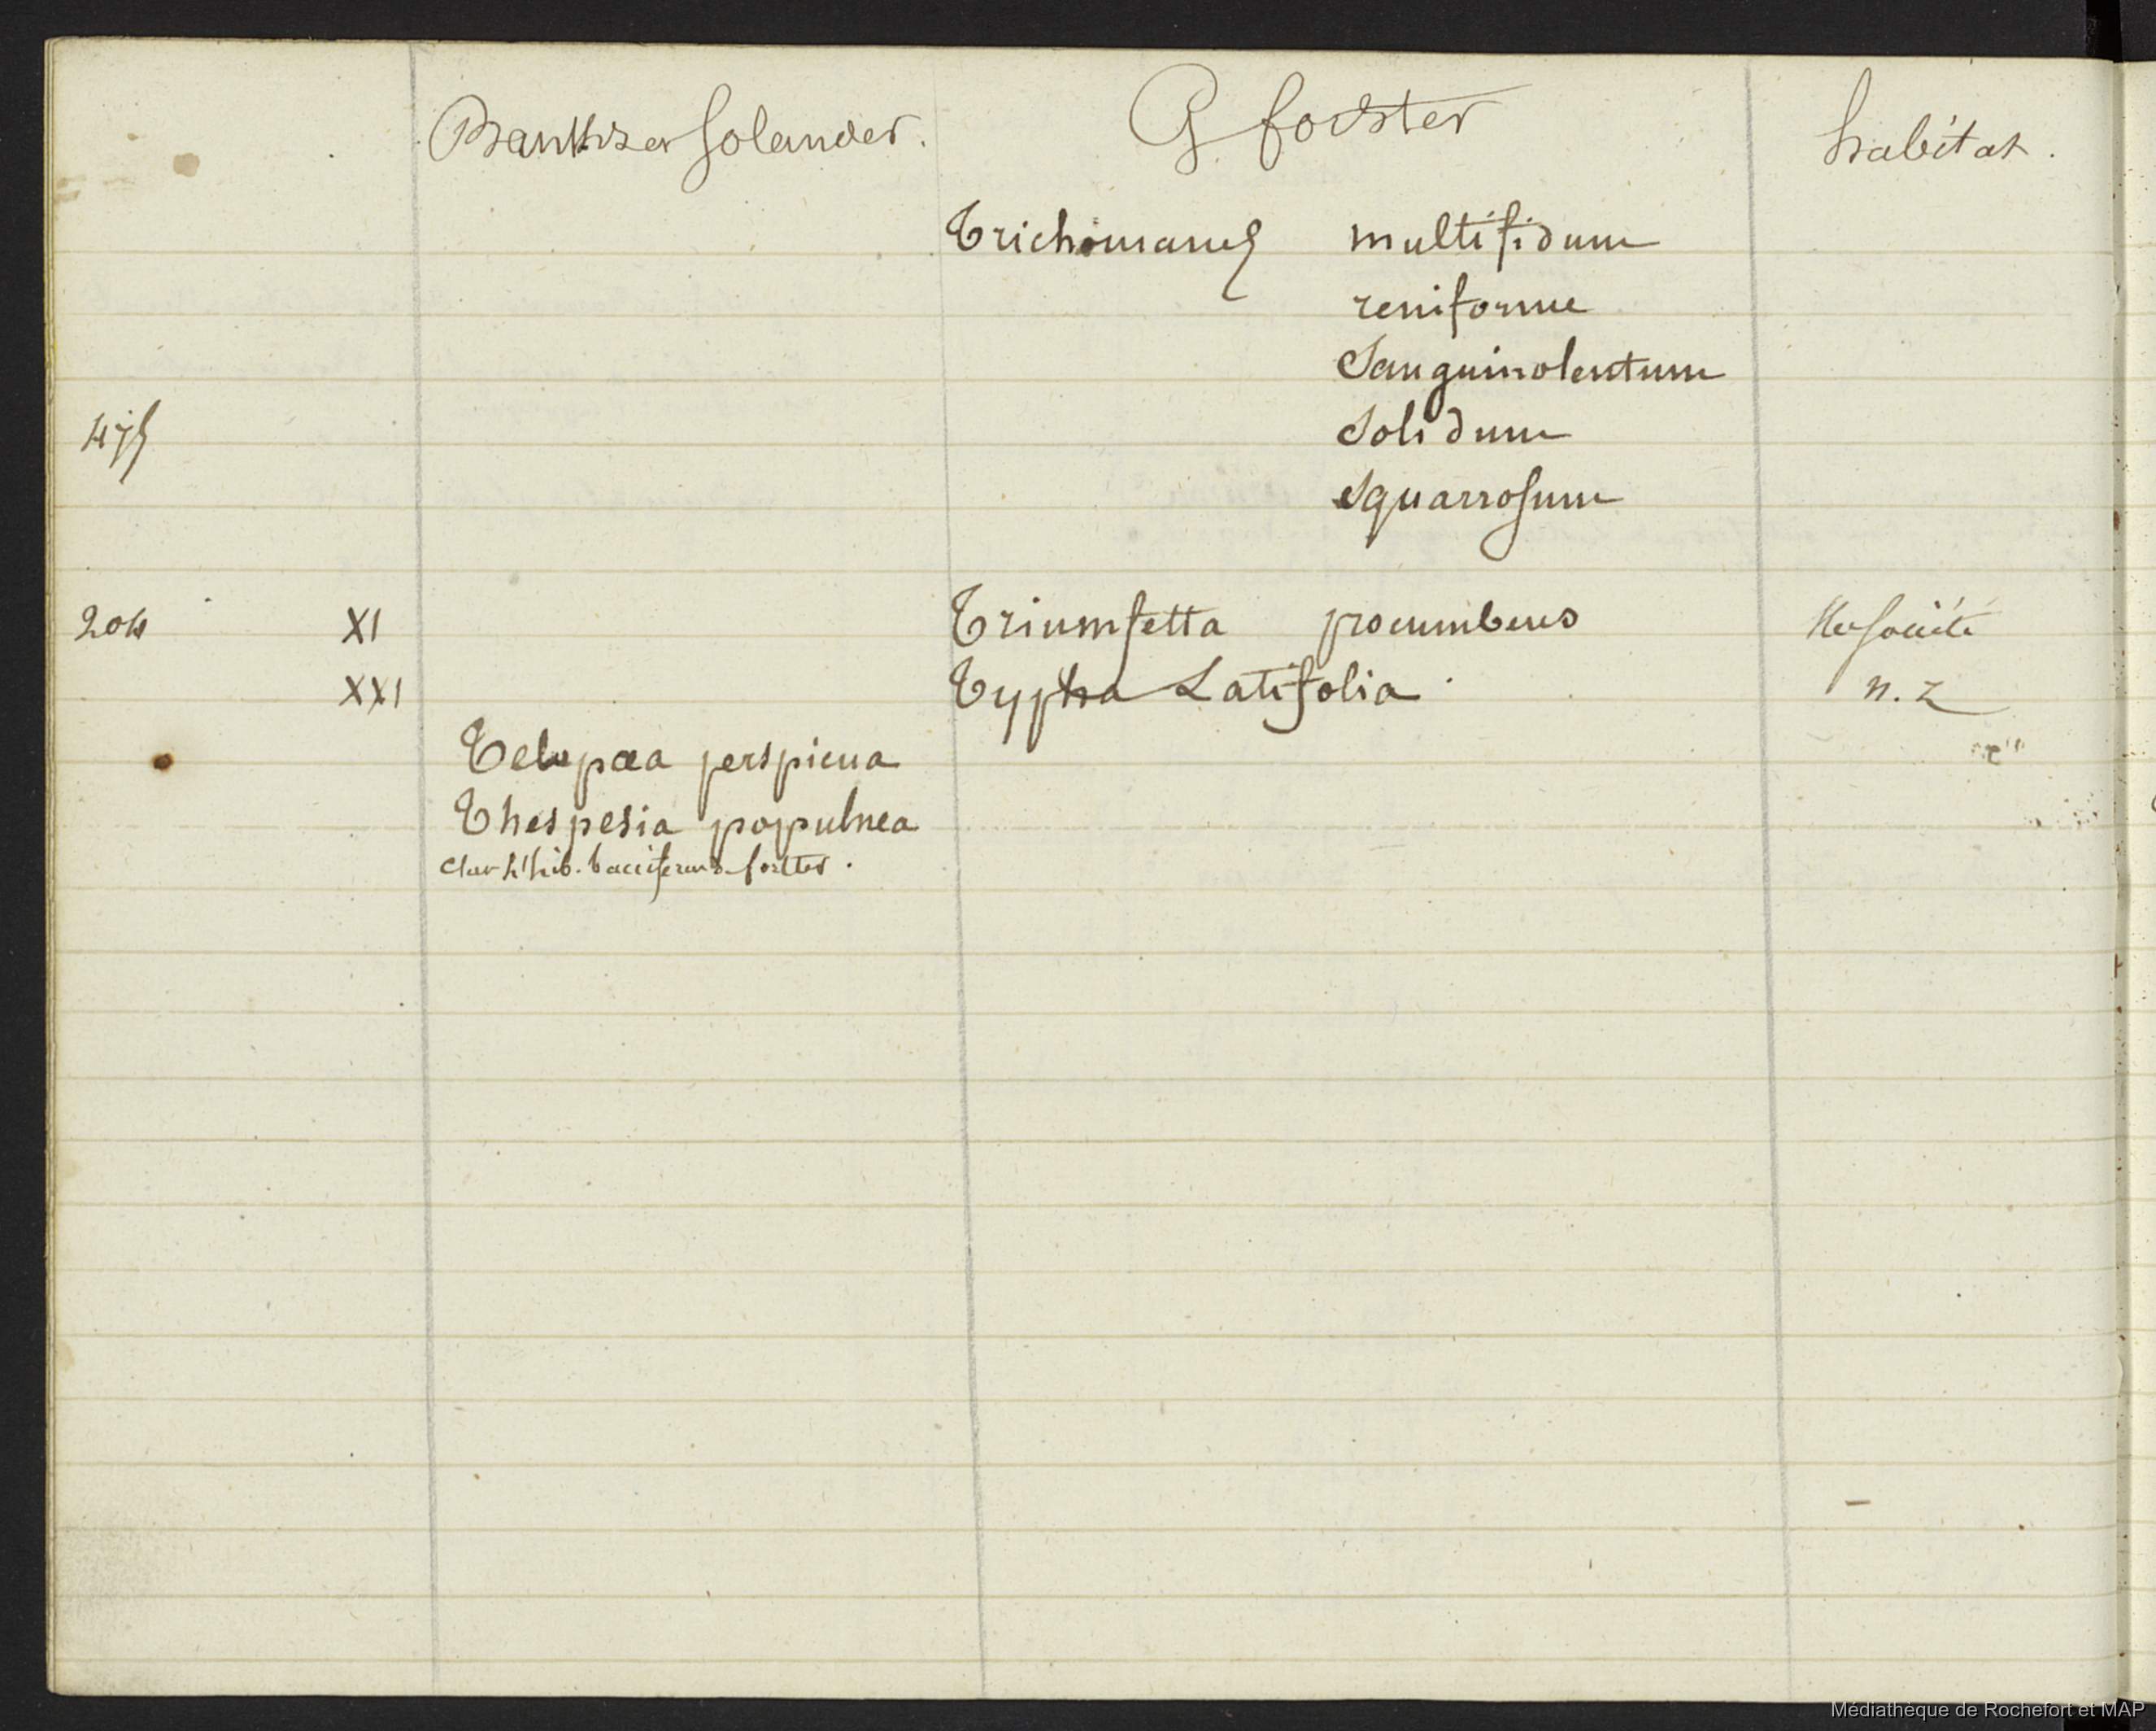 Banks et Solander. G forster habitat.
Trichomanes multifidum
reniforme
Sanguinolentum
475 Solidum
squarrosum
204 XI Triumfetta procumbens Iles société
XXI Typha Latifolia. n. z
Telopæa perspicua
Thespesia populnea
hib. bacciferus forster.
Médiathèque de Rochefort et MAP